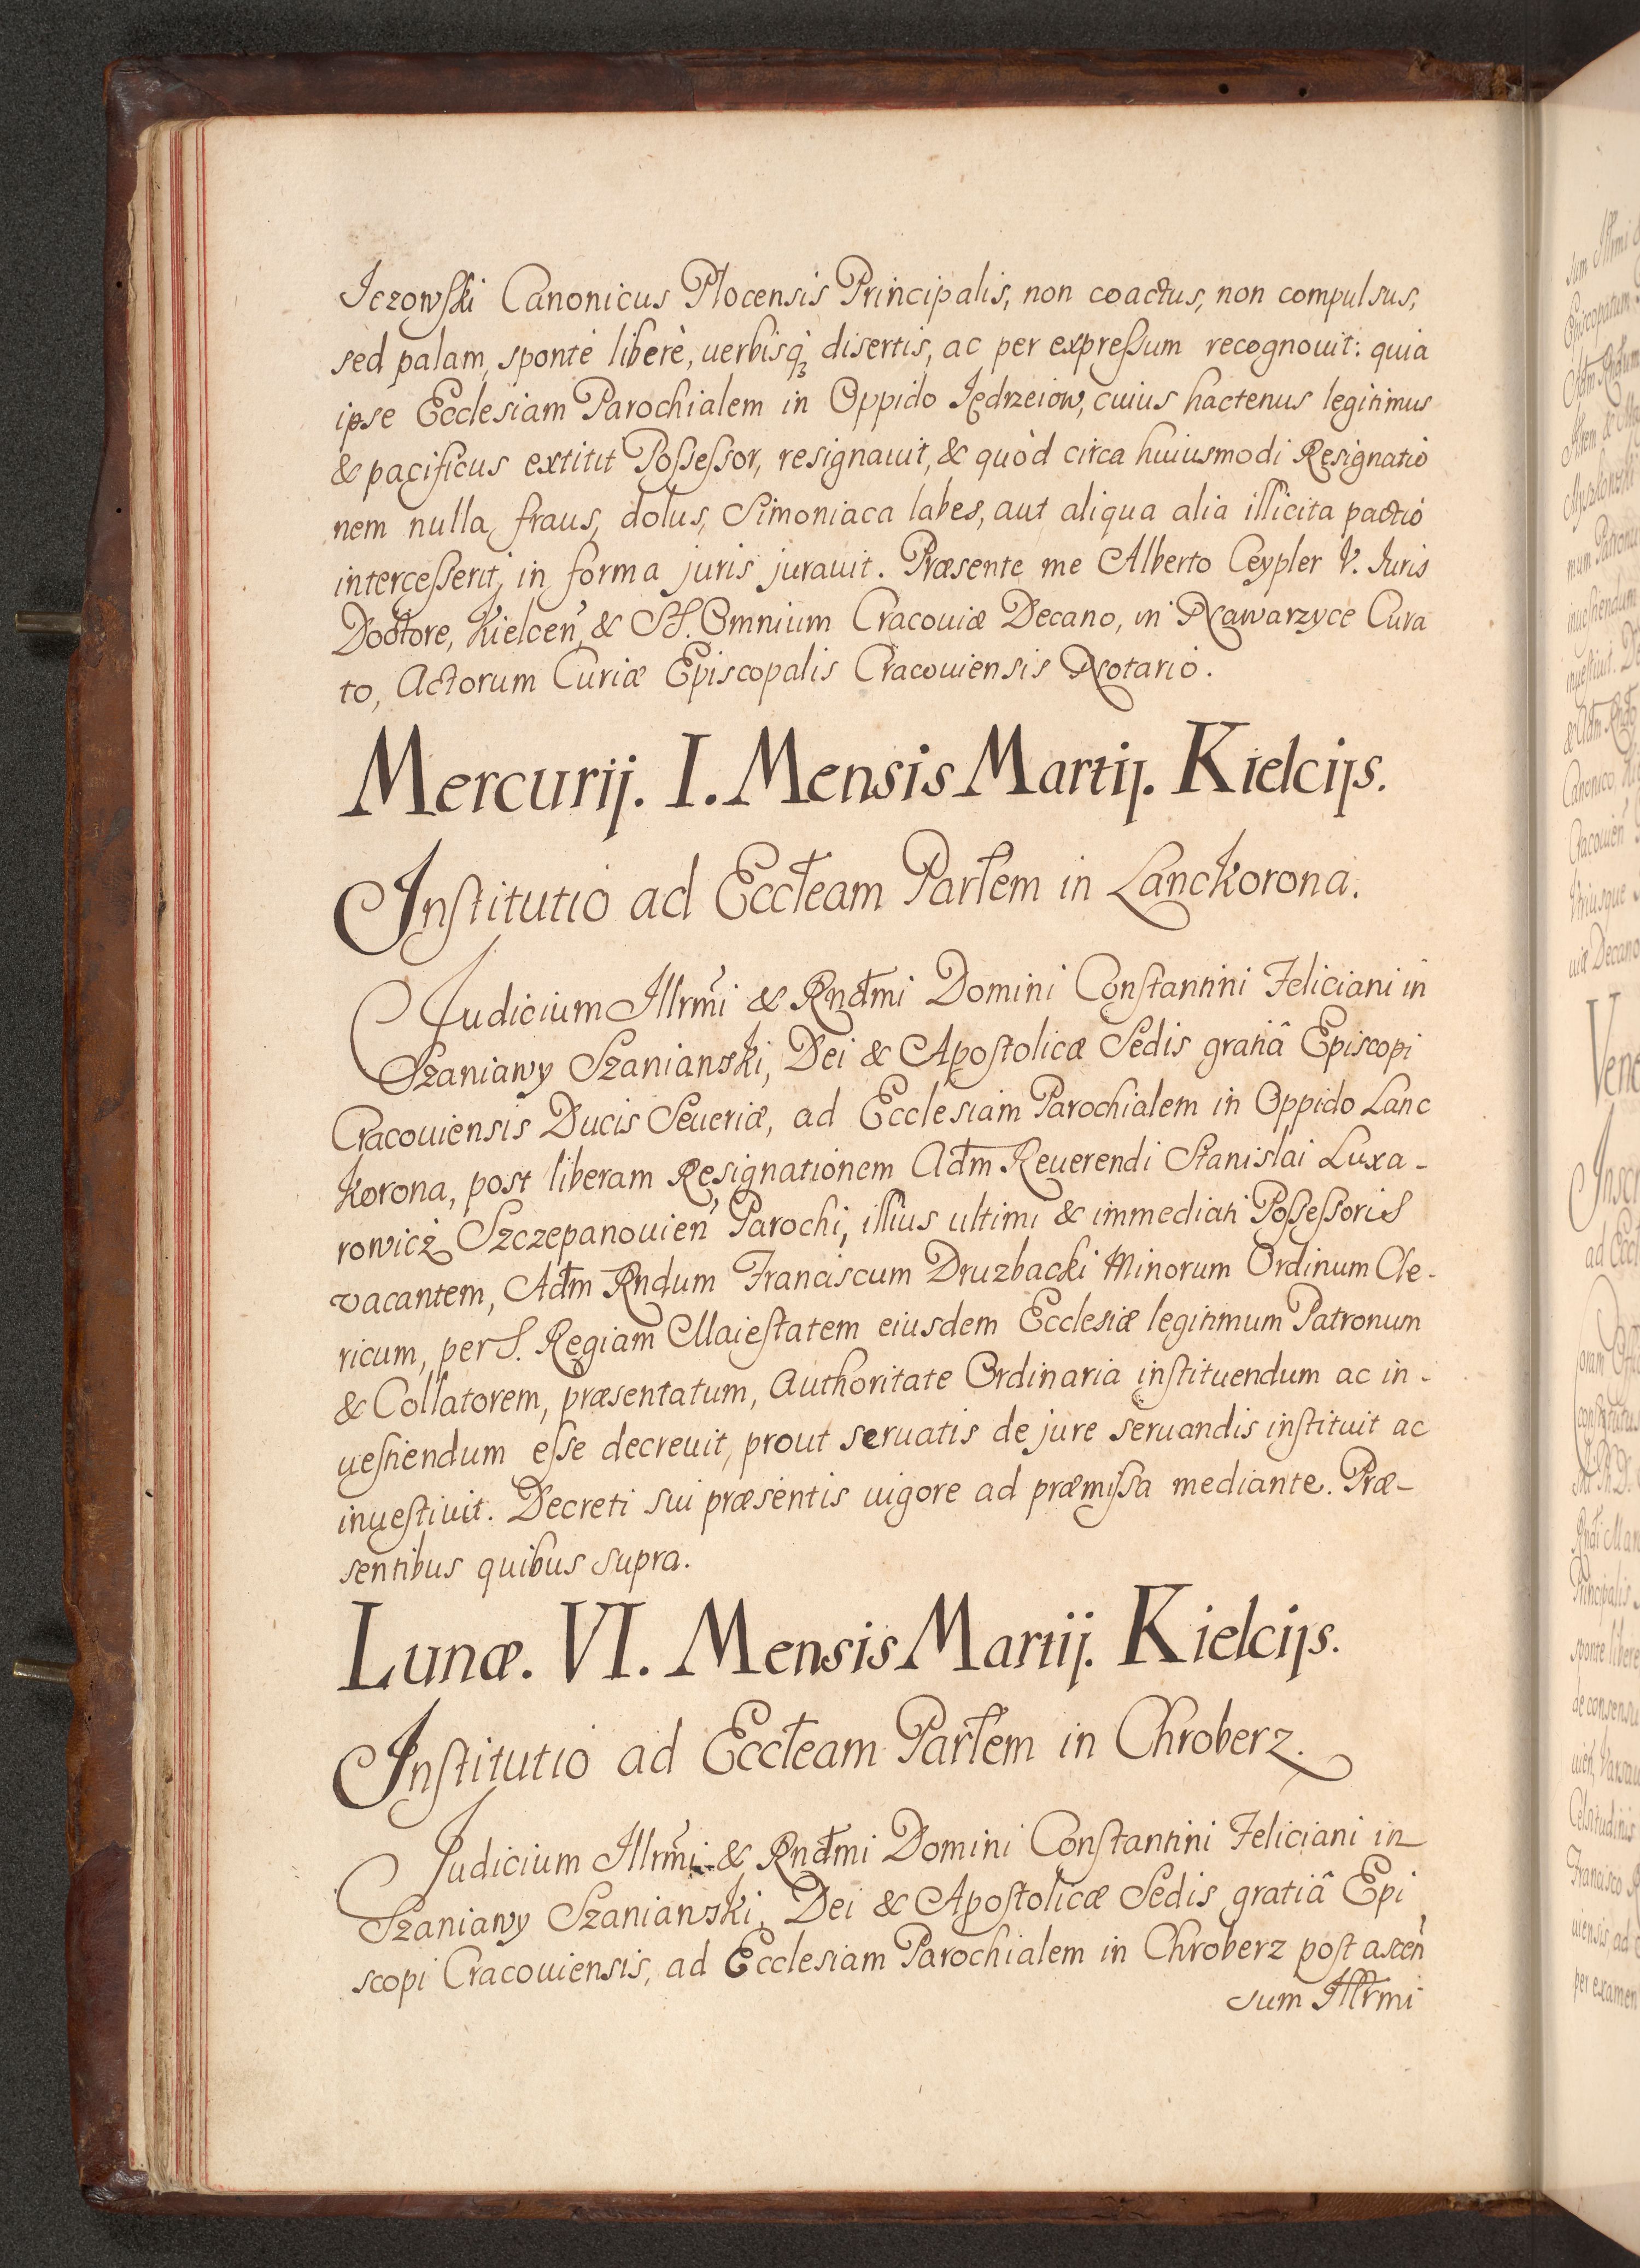 Jezowski Canonicus Plocensis Principalis, non coactus, non compulsus,
sed palam, sponte liberè, uerbisq̀₃ disertis, ac per expreſsum recognouit: quia
ipse Ecclesiam Parochialem in Oppido Jędrzeiow, cuius hactenus legitimus
& pacificus extitit Poſseſsor, resignauit, & quòd circa huiusmodi Resignatio
nem nulla fraus, dolus, Simoniaca labes, aut aliqua alia illicita pactio
interceſserit, in forma juris jurauit. Præsente me Alberto Ceypler V. Iuris
Doctore, Kielcen̄, & SS. Omnium Cracouiæ Decano, in Nawarzyce Cura
to, Actorum Curiæ Episcopalis Cracouiensis Notario.
Mercurij. I. Mensis Martij. Kielcijs.
Inſtitutio ad Eccƚeam Parƚem in Lanckorona.
Judicium Illrm̄i & Rndm̄i Domini Conſtantini Feliciani in
Szaniawy Szaniawski, Dei & Apoſtolicæ Sedis gratiâ Episcopi
Cracouiensis Ducis Seueriæ, ad Ecclesiam Parochialem in Oppido Lanc
korona, post liberam Resignationem Adm̄ Reuerendi Stanislai Luxa-
rowicż Szczepanouien̄ Parochi, illius ultimi & immediati Poſseſsoris
vacantem, Adm̄ Rndum Franciscum Druzbacki Minorum Ordinum Cle-
ricum, per S. Regiam Maieſtatem eiusdem Ecclesiæ legitimum Patronum
& Collatorem, præsentatum, Authoritate Ordinaria inſtituendum ac in-
ueſtiendum eſse decreuit, prout seruatis de jure seruandis inſtituit ac
inueſtiuit. Decreti sui præsentis uigore ad præmiſsa mediante. Præ-
sentibus quibus supra.
Lunæ. VI. Mensis Martij. Kielcijs.
Inſtitutio ad Eccƚeam Parƚem in Chroberz.
Judicium Illrm̄i & Rndm̄i Domini Conſtantini Feliciani in
Szaniawy Szaniawski, Dei & Apoſtolicæ Sedis gratiâ Epi
scopi Cracouiensis, ad Ecclesiam Parochialem in Chroberz poſt ascen̄
sum Illrmi